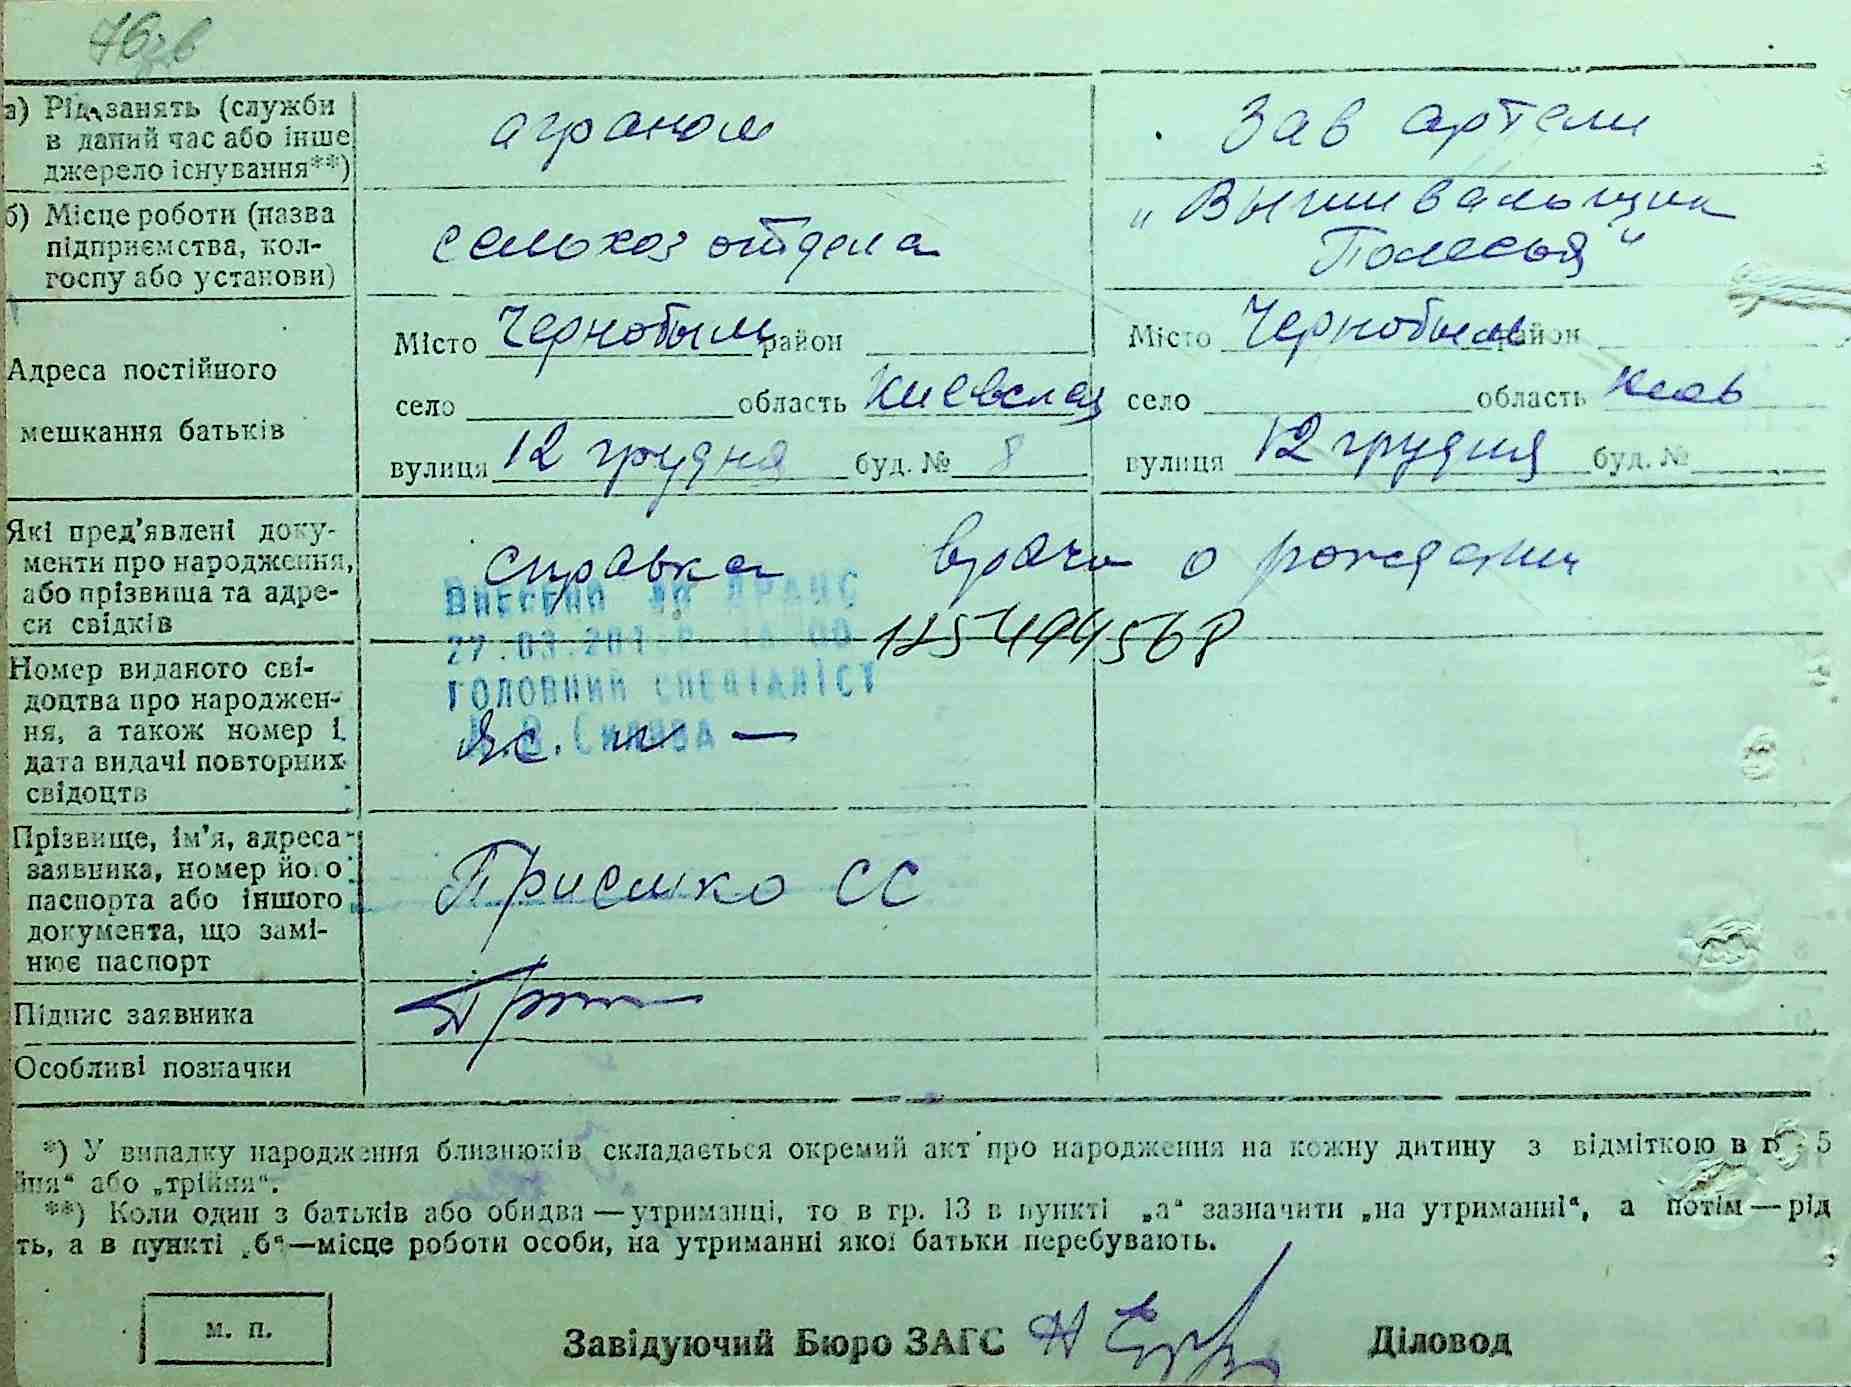 76зв
а) Рід занять (служби в даний час або інше джерело існування**)
аграном
Зав артели
б) Місце роботи (назва підприємства, колгоспу або установи)
сельхоз отдела
„Вышивальщик Полесья“
Адреса постійного мешкання батьків
Місто Чернобыль район
село область Киевская
вулиця 12 грудня буд. № 8
Місто Чернобыль район
село область Киев
вулиця 12 грудня буд. №
Які пред'явлені документи про народження, або прізвища та адреси свідків
справка врача о рождении
Внесено до ДРАЦС
27.03.201
125494568
головний спеціаліст
Номер виданого свідоцтва про народження, а також номер і дата видачі повторних свідоцтв
Прізвище, ім'я, адреса заявника, номер його паспорта або іншого документа, що замінює паспорт
СС
Підпис заявника
Особливі позначки
*) У випадку народження близнюків складається окремий акт про народження на кожну дитину з відміткою в п 5
йня“ або „трійня“.
**) Коли один з батьків або обидва — утриманці, то в гр. 13 в пункті „а“ зазначити „на утриманні“, а потім — рід
ть, а в пункті „б“—місце роботи особи, на утриманні якої батьки перебувають.
м. п.
Завідуючий Бюро ЗАГС
Діловод